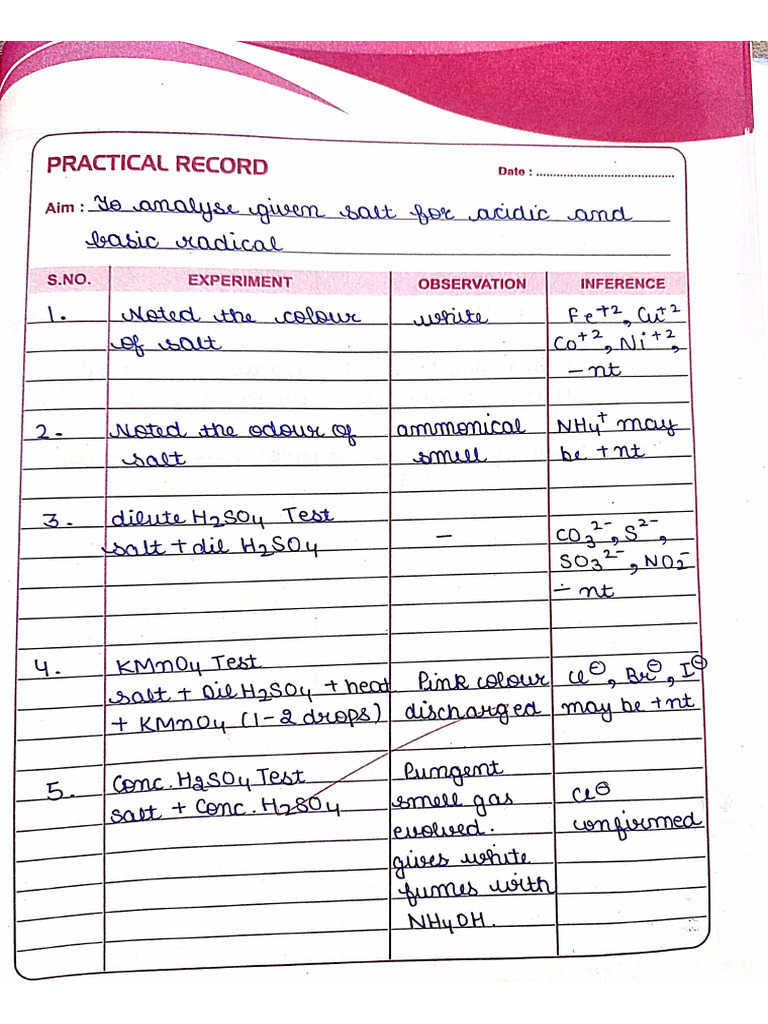 PRACTICAL RECORD
Date : ........................................
Aim : To analyse given salt for acidic and
basic radical
S.NO. EXPERIMENT OBSERVATION INFERENCE
1. Noted the colour white Fe+2, Cu+2
of salt Co+2, Ni+2,
-nt
2- Noted the odour of ammonical NH4+ may
salt smell be +nt
3. dilute H2SO4 Test CO3 2-, S2-,
salt + dil H2SO4 - SO3 2-, NO2-
- nt
4. KMnO4 Test
salt + Dil H2SO4 + heat Pink colour Cl⊖, Br⊖, I⊖
+ KMnO4 (1-2 drops) discharged may be +nt
5. Conc. H2SO4 Test Pungent
salt + Conc. H2SO4 smell gas Cl⊖
evolved. confirmed
gives white
fumes with
NH4OH.